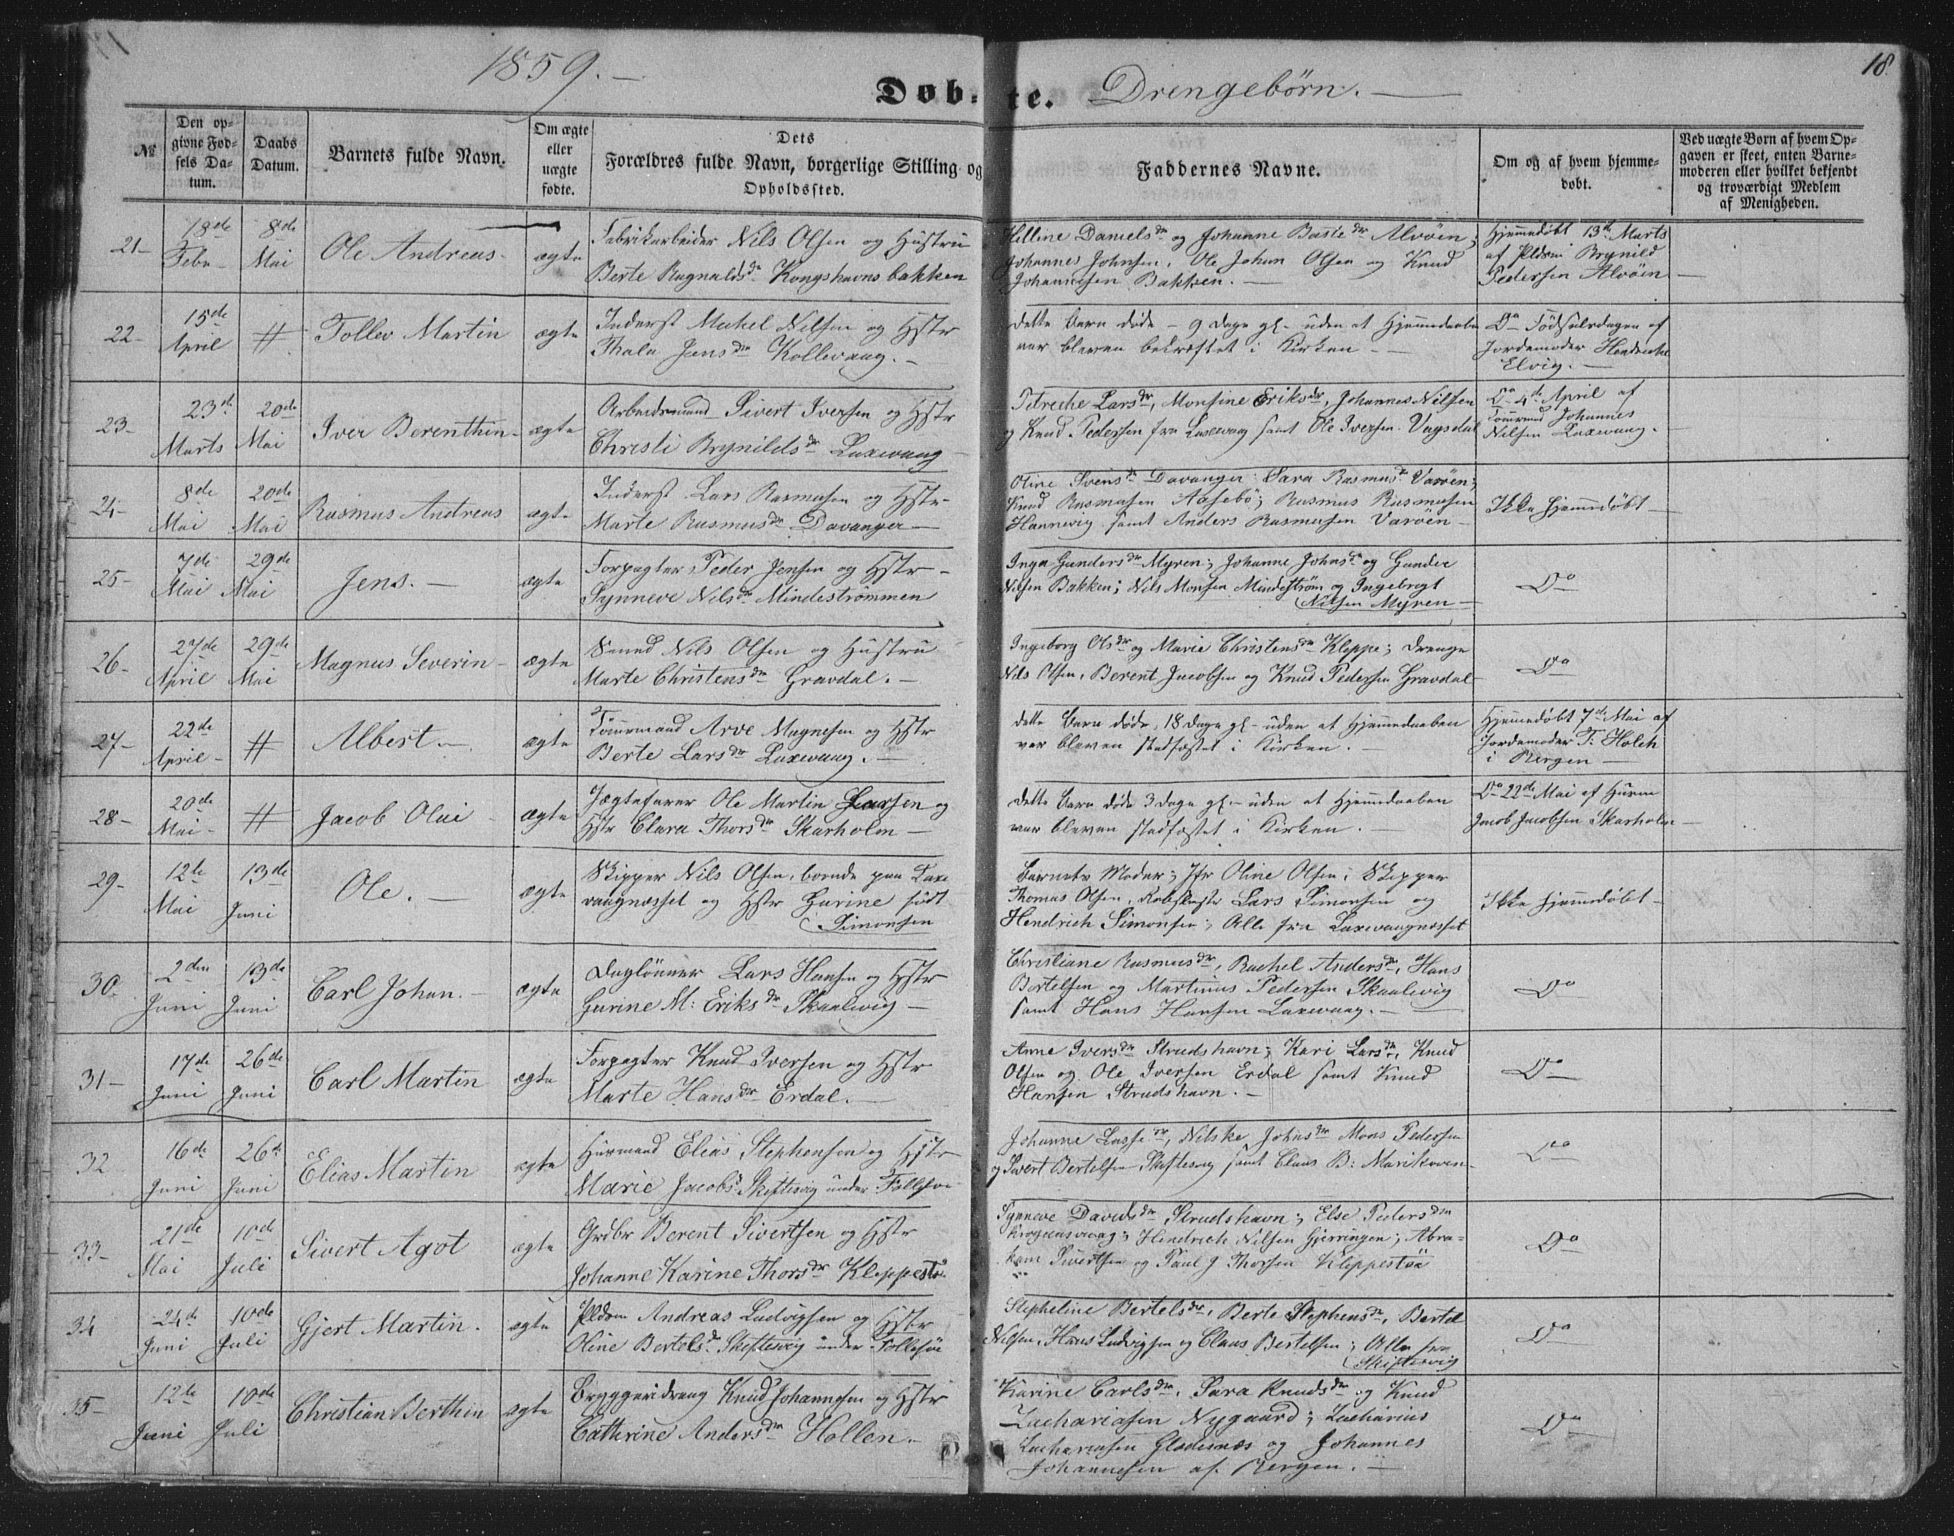 1859.
18
Døb-te. Drengebørn.
No
Den op-
givne Fød-
sels Da-
tum.
Daabs
Datum.
Barnets fulde Navn.
Om ægte
eller
uægte
fødte.
Dets
Forældres fulde Navn, borgerlige Stilling og
Opholdssted.
Faddernes Navne.
Om og af hvem hjemme-
døbt.
Ved uægte Børn af hvem Op-
gaven er skeet, enten Barne-
moderen eller hvilket bekjendt
og troværdigt Medlem
af Menigheden.
21- 18de Febr 8de Mai Ole Andreas- ægte
Fabrikarbeider Nils Olsen og Hustru
Berte Ragnaldsdr Kongshavns bakken
Helline Danielsdr og Johanne Bastedr Alvøen;
Johannes Johnsen, Ole Johan Olsen og Knud
Johannesen Bakken.
Hjemmedøbt 13de Marts
af Pldsm Brynild
Pedersen Alvøen
22- 15de April # Tollev Martin ægte
Inderst Mickel Nilsen og Hstr
Thala Jensdr Kollevaag.
dette Barn døde - 9 Dage gl- uden at Hjemmedaaben
var bleven bekræftet i Kirken
Do Fødselsdagen af
Jordemoder Hendrikke
Elvig.
23- 23de Marts 20de Mai Iver Berenthin- ægte
Arbeidsmand Sivert Iversen og Hstr
Christi Brynildsdr Laxevaag
Petreche Larsdr, Monsine Eriksdr, Johannes Nilsen
og Knud Pedersen fra Laxevaag samt Ole Iversen Vagsdal
Do 4de April af
Tømrmd Johannes
Nilsen Laxevaag.
24- 8de Mai 20de Mai Rasmus Andreas ægte
Inderst Lars Rasmusen og Hstr
Marte Rasmusdr Davanger
Oline Svensdr Davanger. Sara Rasmusdr Varøen;
Knud Rasmusen Aasebø; Rasmus Rasmusen
Hannevig samt Anders Rasmusen Varøen
Ikke hjemmedøbt
25- 7de Mai 29de Mai Jens. ægte
Forpagter Peder Jensen og Hstr
Synneve Nilsdr Mindestrømmen
Inga Gundersdr Myren; Johanne Johnsdr og Gunder
Nilsen Bakken; Nils Monsen Mindestrøm og Ingebrigt
Nilsen Myren
Do
26- 27de April 29de Mai Magnus Severin ægte
Nils Olsen og Hustru
Marte Christensdr Gravdal.
Ingeborg Olsdr og Marie Christensdr Kleppe; Drenge
Nils Olsen, Berent Jacobsen og Knud Pedersen Gravdal
Do
27- 22de April # Albert. ægte
Tømrmand Arve Magnesen og Hstr
Berte Larsdr Laxevaag.
dette Barn døde, 18 Dage gl- uden at Hjemmedaaben
var bleven stadfæstet i Kirken.
Hjemmedøbt 7de Mai af
Jordemoder T: Holch
i Bergen
28- 20de Mai # Jacob Olai ægte
Jægtefører Ole Martin Larsen og
Hstr Clara Thorsdr Skarholm
dette Barn døde 3 Dage gl- uden at Hjemmedaaben
var bleven stadfæstet i Kirken.
Do 22de Mai af Huusm
Jacob Jacobsen Skarholm
29- 12te Mai 13de Juni Ole. ægte
Skipper Nils Olsen, boende paa Laxe
vaagnesset og Hstr Gurine født
Simonsen
Barnets Moder; Jfr Oline Olsen; Skipper
Thomas Olsen, Lars Simonsen og
Hendrich Simonsen; Alle fra Laxevaagnesset
Ikke hjemmedøbt
30. 2den Juni 13de Juni Carl Johan. ægte
Daglønner Lars Hansen og Hstr
Gurine M: Eriksdr Skaalevig
Christiane Rasmusdr, Rachel Andersdr, Hans
Bertelsen og Martinus Pedersen Skaalevig
samt Hans Hansen Laxevaag.
Do
31- 17de Juni 26de Juni Carl Martin ægte
Forpagter Knud Iversen og Hstr
Marte Hansdr Erdal.
Anne Iversdr Strudshavn; Kari Larsdr, Knud
Olsen og Ole Iversen Erdal samt Knud
Hansen Strudshavn.
Do
32 16de Juni 26de Juni Elias Martin ægte
Huusmand Elias Stephensen og Hstr
Marie Jacobsd. Skiftesvig under Follesøe
Johanne Lassedr, Nilske Johnsdr Mons Pedersen
og Sivert Bertelsen Skiftesvig samt Claus B: Marikoven
Do
33- 21de Mai 10de Juli Sivert Agot ægte
Grdbr Berent Sivertsen og Hstr
Johanne Karine Thorsdr Kleppestø
Synneve Davidsdr Strudshavn; Else Pedersdtr
; Hindrich Nilsen Gjerringen; Abra-
ham Sivertsen og Paul J Thorsen Kleppestøe
Do
34 24de Juni 10de Juli Gjert Martin. ægte
Pldsm Andreas Ludvigsen og Hstr
Oline Bertelsd. Skiftesvig under Follesøe
Stepheline Bertelsdr, Berte Stephensdr, Bertel
Nilsen, Hans Ludvigsen og Claus Bertelsen; Alle fra
Skiftesvig
Do
35- 12te Juni 10de Juli Christian Berthin ægte
Bryggeridreng Knud Johannesen og Hstr
Cathrine Andersdr Hollen.
Karine Carlsdr, Sara Knudsdr og Knud
Zachariasen Nygaard; Zacharius
Zachariasen Gladesnæs og Johannes
Johannesen af Bergen.
Do